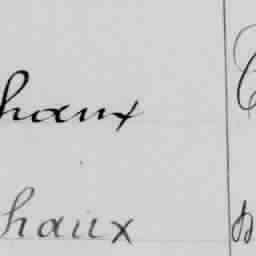 haux
haux